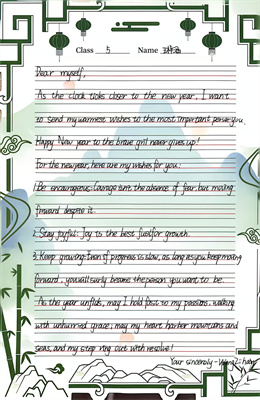 Class 5 Name
Dear myself,
As the clock ticks closer to the new year, I want
to send my warmest wishes to the most important person you.
Happy New year to the brave girl never gives up!
For the new year, here are my wishes for you:
1. Be encourageous: Courage isn't the absence of fear, but moving
forward despite it.
2. Stay joyful: Joy is the best fuel for growth.
3. Keep growing: Even if progress is slow, as long as you keep moving
forward, you will surely become the person you want to be.
As the year unfolds, may I hold fast to my passions, walking
with unhurried grace; may my heart harbor mountains and
seas, and my step ring out with resolve!
Your sincerely - Wang Zi